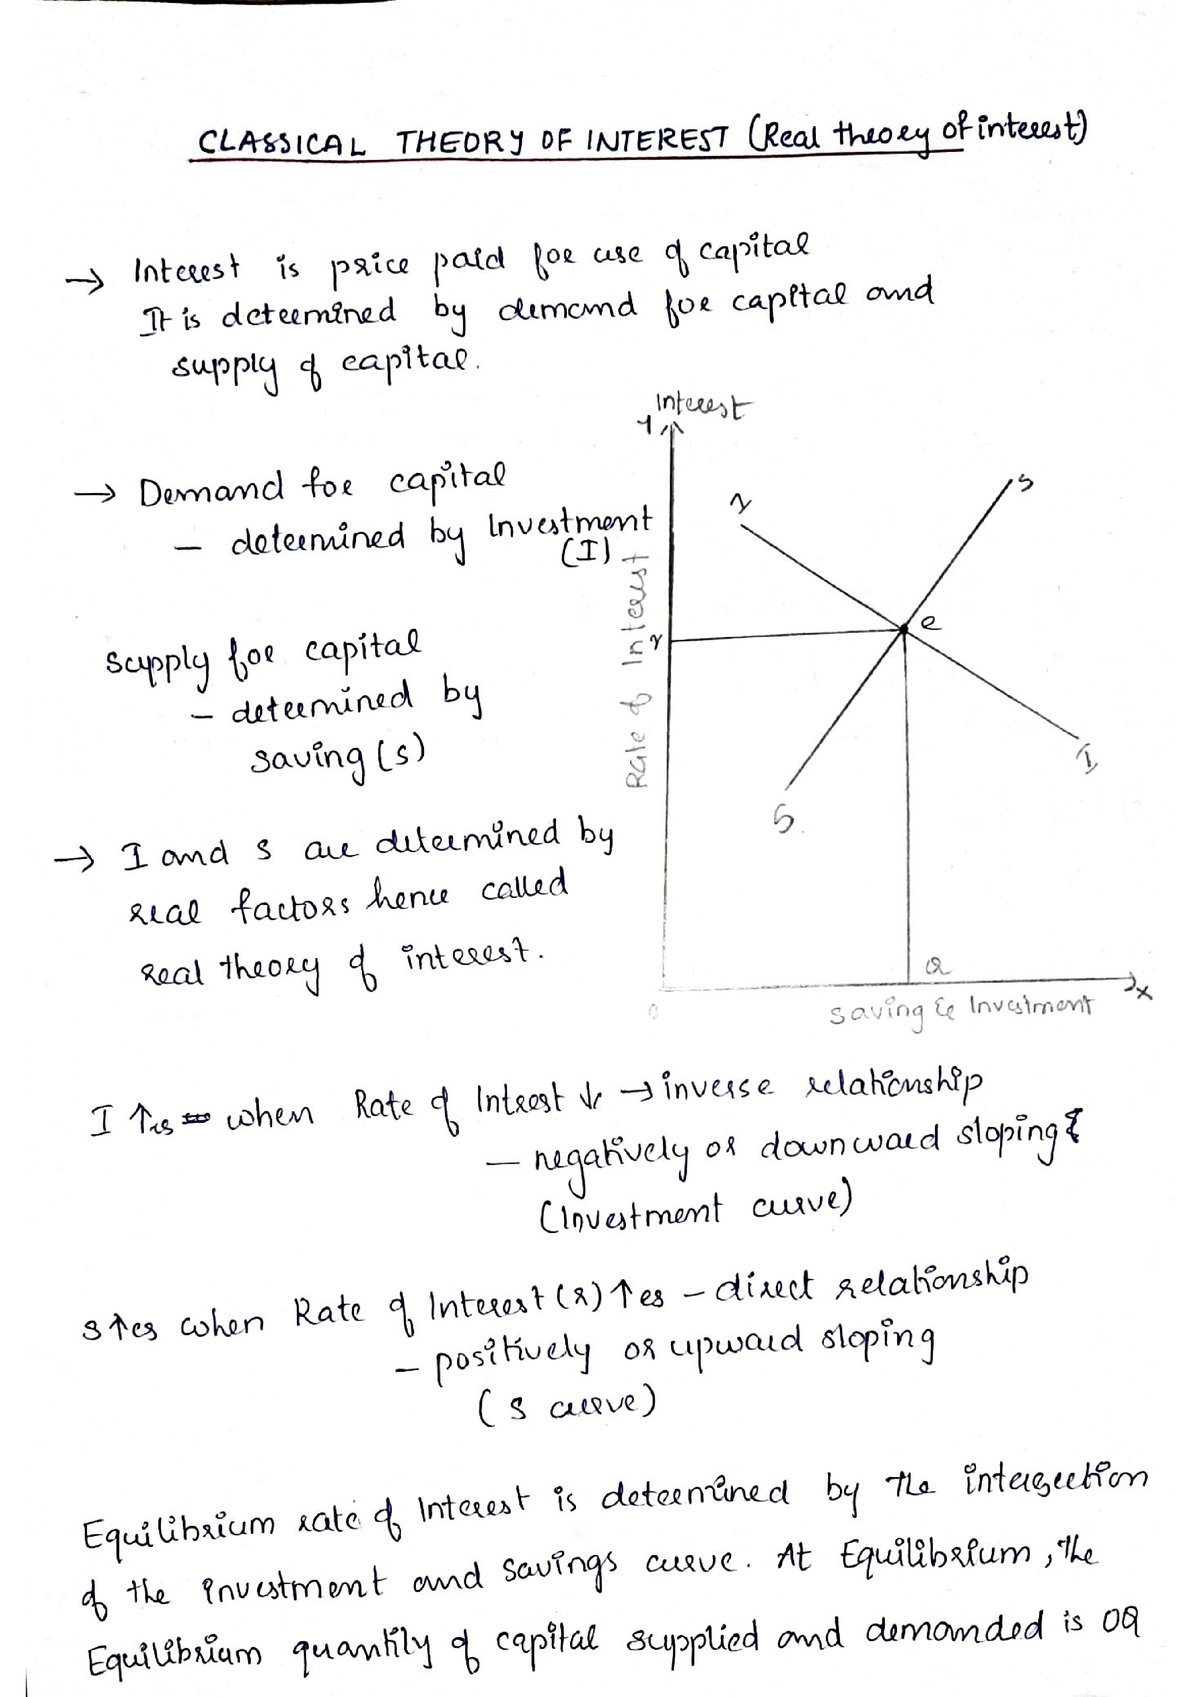 CLASSICAL THEORY OF INTEREST (Real theory of interest)
→ Interest is price paid for use of capital
It is determined by demand for capital and
supply of capital.
Interest
Y
→ Demand for capital
– determined by Investment
(I)
Supply for capital
– determined by
saving (s)
→ I and S are determined by
real factors hence called
real theory of interest.
Rate of Interest
r
I
S
e
I
S
Q
0
X
Saving & Investment
I ↑es when Rate of Interest ↓ → inverse relationship
– negatively or downward sloping
(Investment curve)
S ↑es when Rate of Interest (r) ↑es – direct relationship
– positively or upward sloping
(S curve)
Equilibrium rate of Interest is determined by the intersection
of the investment and savings curve. At Equilibrium, the
Equilibrium quantity of capital supplied and demanded is OQ